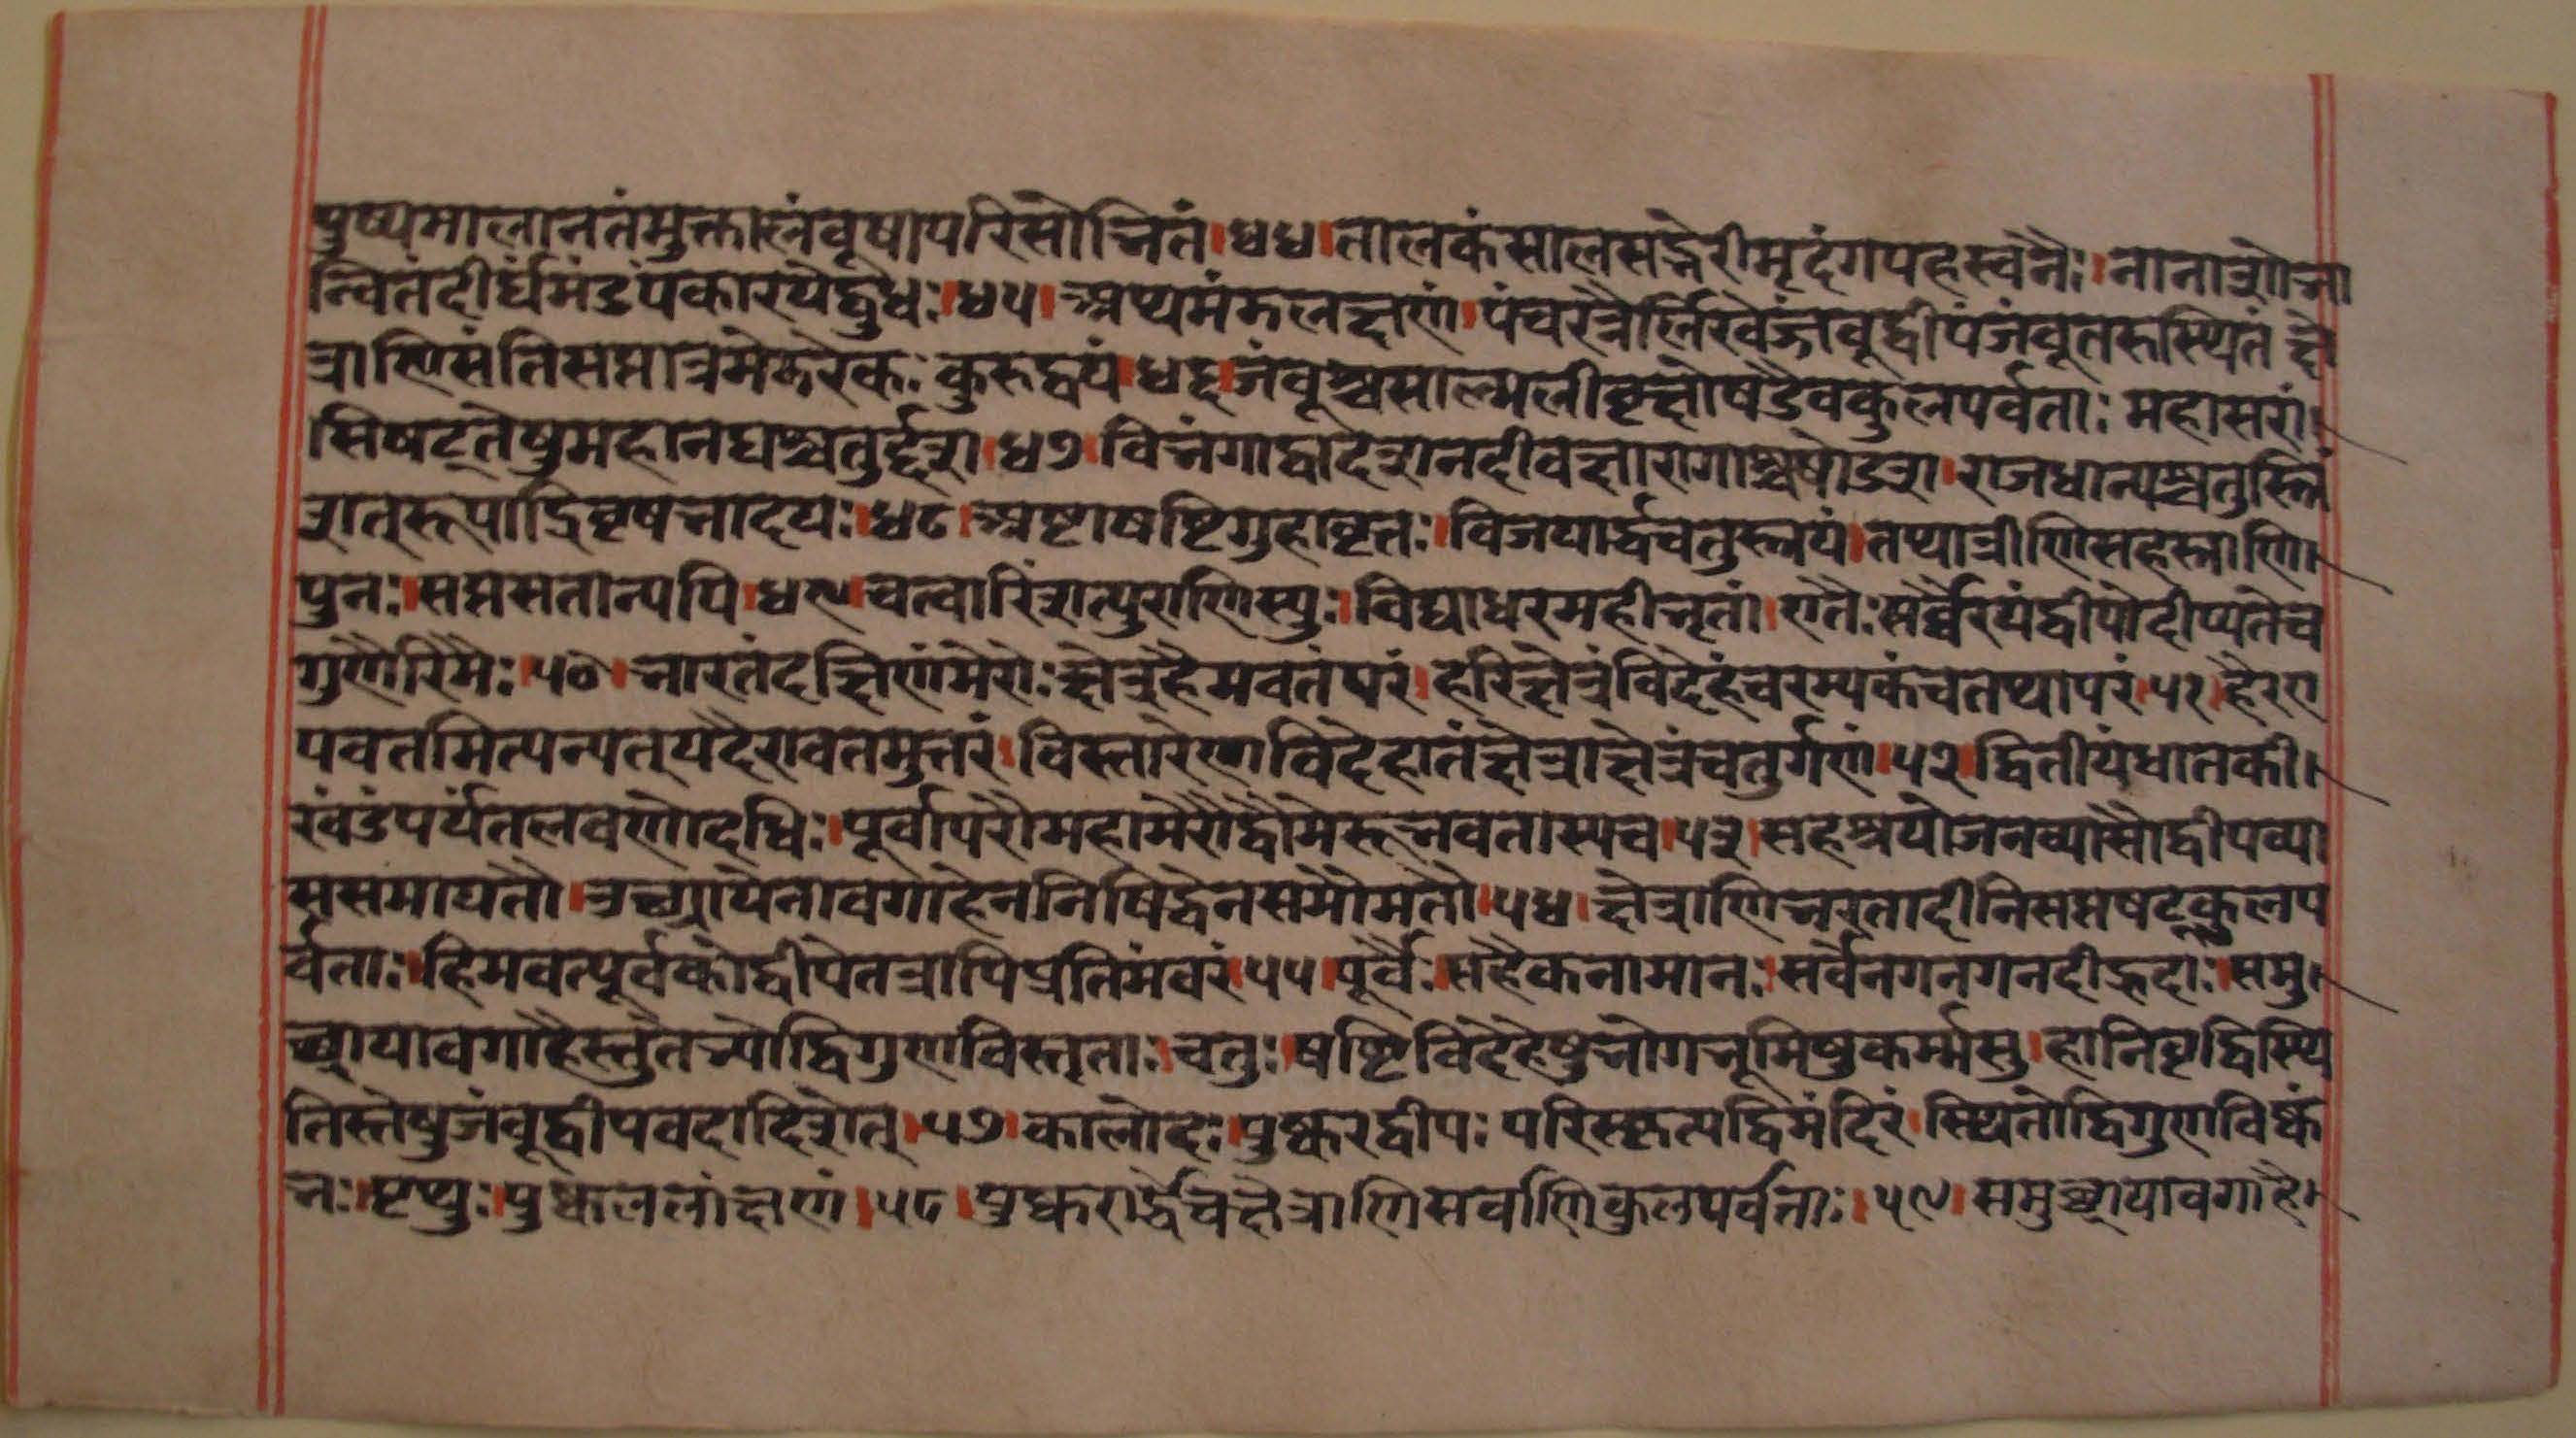 पुष्पमालानतंमुक्तालंवूषापरिसोभितं।४४।तालकंसालसद्भेरीमृदंगपहस्वनैः।नानाशोभा
न्वितंदीर्घंमंडपंकारयेद्बुधः।४५।अथमंडलल‍क्षणं।पंचरत्नैर्लिखेज्जंवूद्वीपंजंवूतरुस्थितं क्षे
त्राणिसंतिसप्तात्रमेरुरेकः कुरुद्वयं।४६।जंवूश्चसाल्मलीवृक्षोषडेवकुलपर्वताः महासरां।
सिषट्तेषुमहानद्यश्चतुर्द्दश।४७।विभंगाद्वादशनदीवक्षारागाश्चषोडश।राजधान्यश्चतुस्त्रिं
शत्रूपाद्रिवृषभादयः।४८।अष्टाषष्टिगुहावृतः।विजयार्द्धचतुस्त्रयं।तथात्रीणिसहस्त्राणि।
पुनः।सप्तसतान्यपि।४९।चत्वारिंशत्पुराणिस्युः।विद्याधरमहीभृतां।एतैःसर्वैरयंद्वीपोदीप्यतेच
गुणैरिमैः।५०।भारतंदक्षिणंमेरोःक्षेत्रंहैमवतंपरं।हरिक्षेत्रंविदेहंचरम्यकंचतथापरं।५१।हैरण
यवतमित्यन्यत्यदैरावतमुत्तरं।विस्तारेणविदेहांतंक्षेत्राक्षेत्रंचतुर्गणं।५२।द्वितीयंधातकी।
खंडंपर्यंतलवणोदधिः।पूर्वापरौमहामेरौद्वौमेरूभवतास्यच।५३।सहश्रयोजनव्यासौद्वीपव्या
ससमायतौ।उच्छ्रायेनावगाहेननिषिद्धेनसमौमतौ।५४।क्षेत्राणिभरतादीनिसप्तषट्कुलप
र्वताः।हिमवत्पूर्वकोद्वीपेतत्रापिप्रतिमंवरं।५५।पूर्वैःसहैकनामानःसर्वेनगनगनदीह्रदाः।समु।
च्छ्रायावगाहैस्तुतेभ्योद्विगुणविस्तृताः।चतुःषष्टिविदेहेषुभोगभूमिषुकर्म्मसु।हानिवृद्धिस्थि
तिस्तेषुजंवूद्वीपवदादिशेत्।५७।कालोदः।पुष्करद्वीपः परिसृत्यद्विमंदिरं।स्थितोद्विगुणविष्कं
भः।पृथुः।पुष्कललांक्षणं।५८।पुष्करार्द्धेचक्षेत्राणिसर्वाणिकुलपर्वताः।५९।समुच्छ्रायावगाहै।